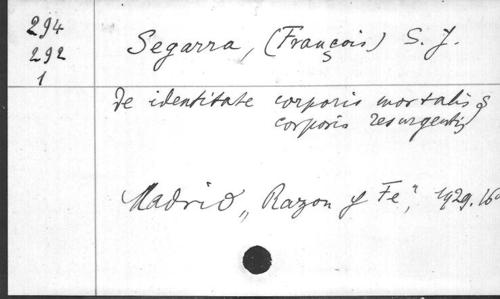 294
292
1
Segarra, (François) S. J.
De identitate corporis mortalis &
corporis resurgentis
Madrid „Razon y Fe", 1929. 16°